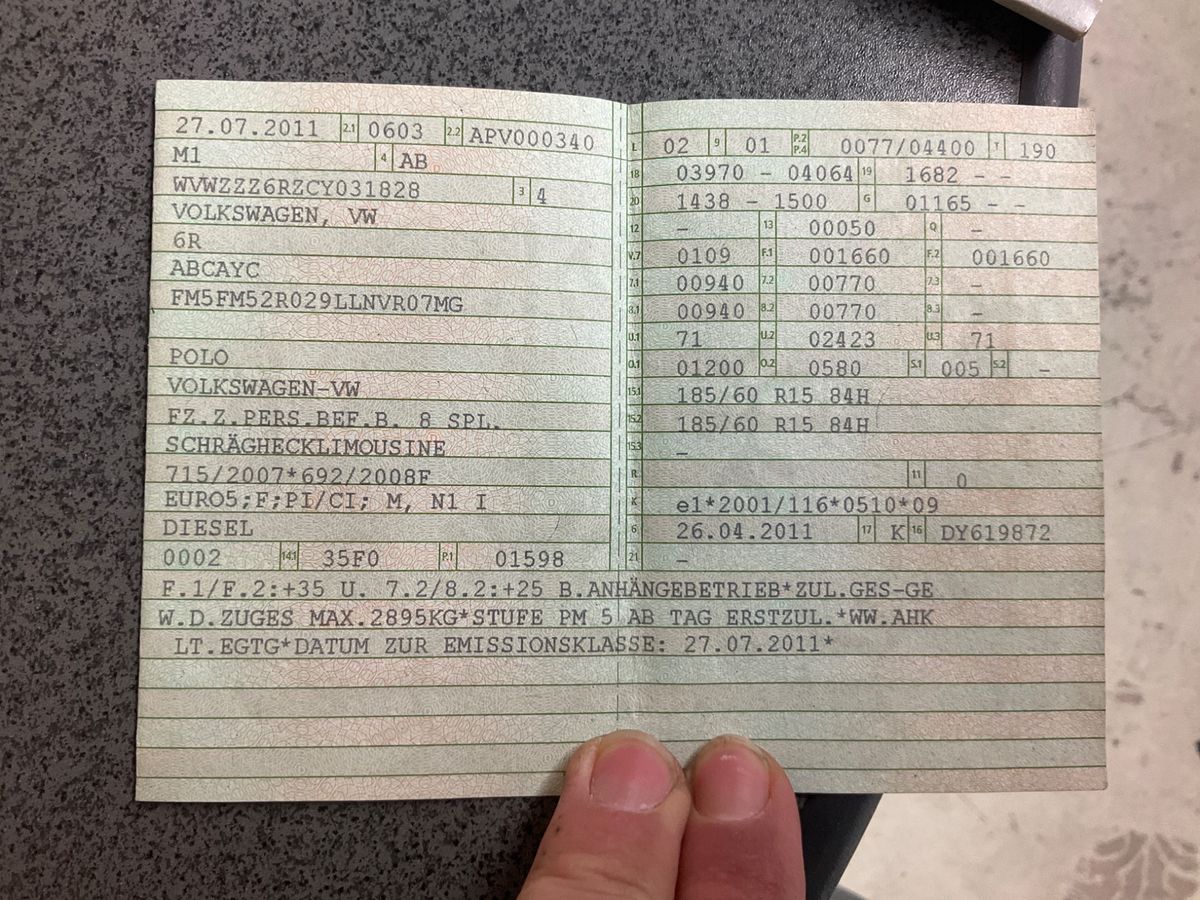 27.07.2011 2.1 0603 2.2 APV000340
M1 4 AB
WVWZZZ6RZCY031828 3 4
VOLKSWAGEN, VW
6R
ABCAYC
FM5FM52R029LLNVR07MG
POLO
VOLKSWAGEN-VW
FZ.Z.PERS.BEF.B. 8 SPL.
SCHRÄGHECKLIMOUSINE
715/2007*692/2008F
EURO5;F;PI/CI; M, N1 I
DIESEL
0002 14.1 35F0 P.1 01598
L 02 9 01 P.2 P.4 0077/04400 T 190
18 03970 - 04064 19 1682 - -
20 1438 - 1500 G 01165 - -
12 - 13 00050 Q -
V.7 0109 F.1 001660 F.2 001660
7.1 00940 7.2 00770 7.3 -
8.1 00940 8.2 00770 8.3 -
U.1 71 U.2 02423 U.3 71
O.1 01200 O.2 0580 S.1 005 S.2 -
15.1 185/60 R15 84H
15.2 185/60 R15 84H
15.3 -
R 11 0
K e1*2001/116*0510*09
6 26.04.2011 17 K 16 DY619872
21 -
F.1/F.2:+35 U. 7.2/8.2:+25 B.ANHÄNGEBETRIEB*ZUL.GES-GE
W.D.ZUGES MAX.2895KG*STUFE PM 5 AB TAG ERSTZUL.*WW.AHK
LT.EGTG*DATUM ZUR EMISSIONSKLASSE: 27.07.2011*